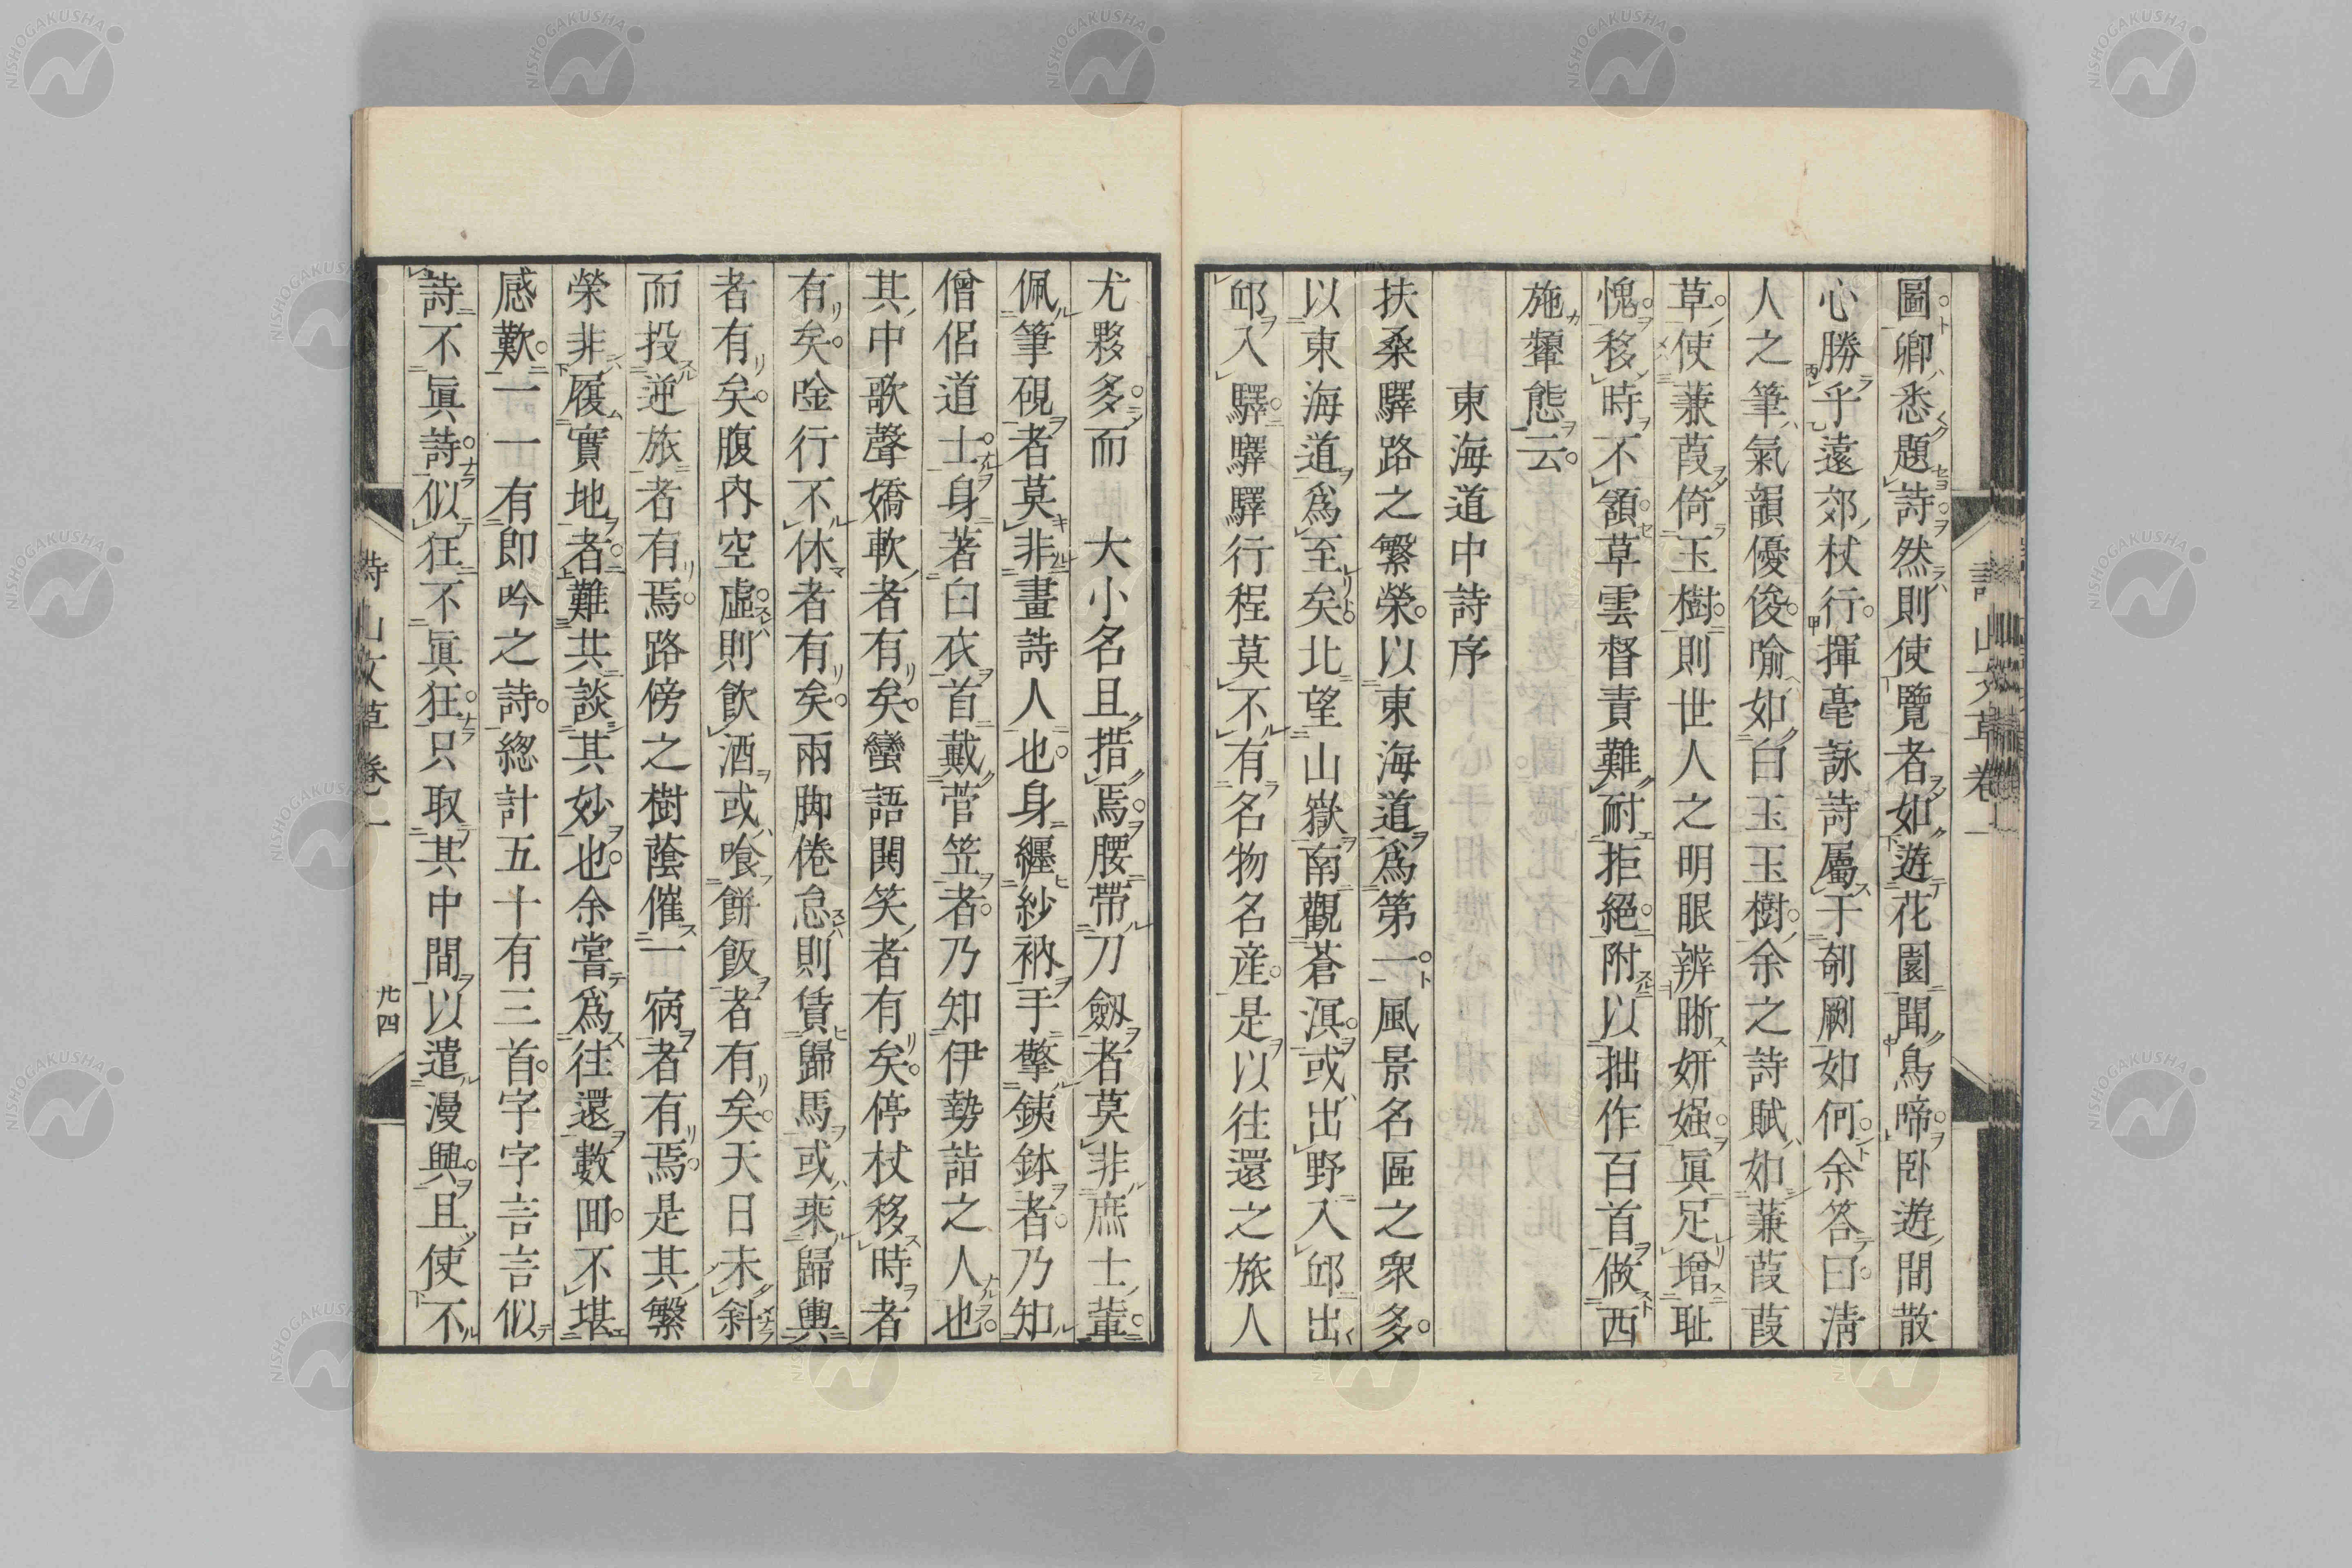 圖卿悉題詩然則使覽者如遊花園聞鳥啼臥遊間散
心勝乎遠郊杖行揮毫詠詩屬于剞劂如何余答曰淸
人之筆氣韻優俊喻如白玉玉樹余之詩賦如蒹葭葭
草使蒹葭倚玉樹則世人之明眼辨晰妍媸眞足增耻
愧移時不額草雲督責難耐拒絕附以拙作百首做西
施顰態云
東海道中詩序
扶桑驛路之繁榮以東海道爲第一風景名區之衆多
以東海道爲至矣北望山嶽南觀蒼溟或出野入邱出
邱入驛驛驛行程莫不有名物名産是以往還之旅人
尤夥多而大小名且措焉腰帶刀劔者莫非庶士輩
佩筆硯者莫非畫詩人也身纒紗衲手擎銕鉢者乃知
僧侶道士身著白衣首戴菅笠者乃知伊勢詣之人也
其中歌聲嬌軟者有矣蠻語鬨笑者有矣停杖移時者
有矣唫行不休者有矣兩脚倦怠則賃歸馬或乘歸輿
者有矣腹內空虛則飮酒或喰餠飯者有矣天日未斜
而投逆旅者有焉路傍之樹蔭催一宿者有焉是其繁
榮非履實地者難共談其妙也余嘗爲往還數回不堪
感歎一一有卽吟之詩總計五十有三首字字言言似
詩不眞詩似狂不眞狂只取其中間以遣漫興且使不
詩山文草卷一
廿四